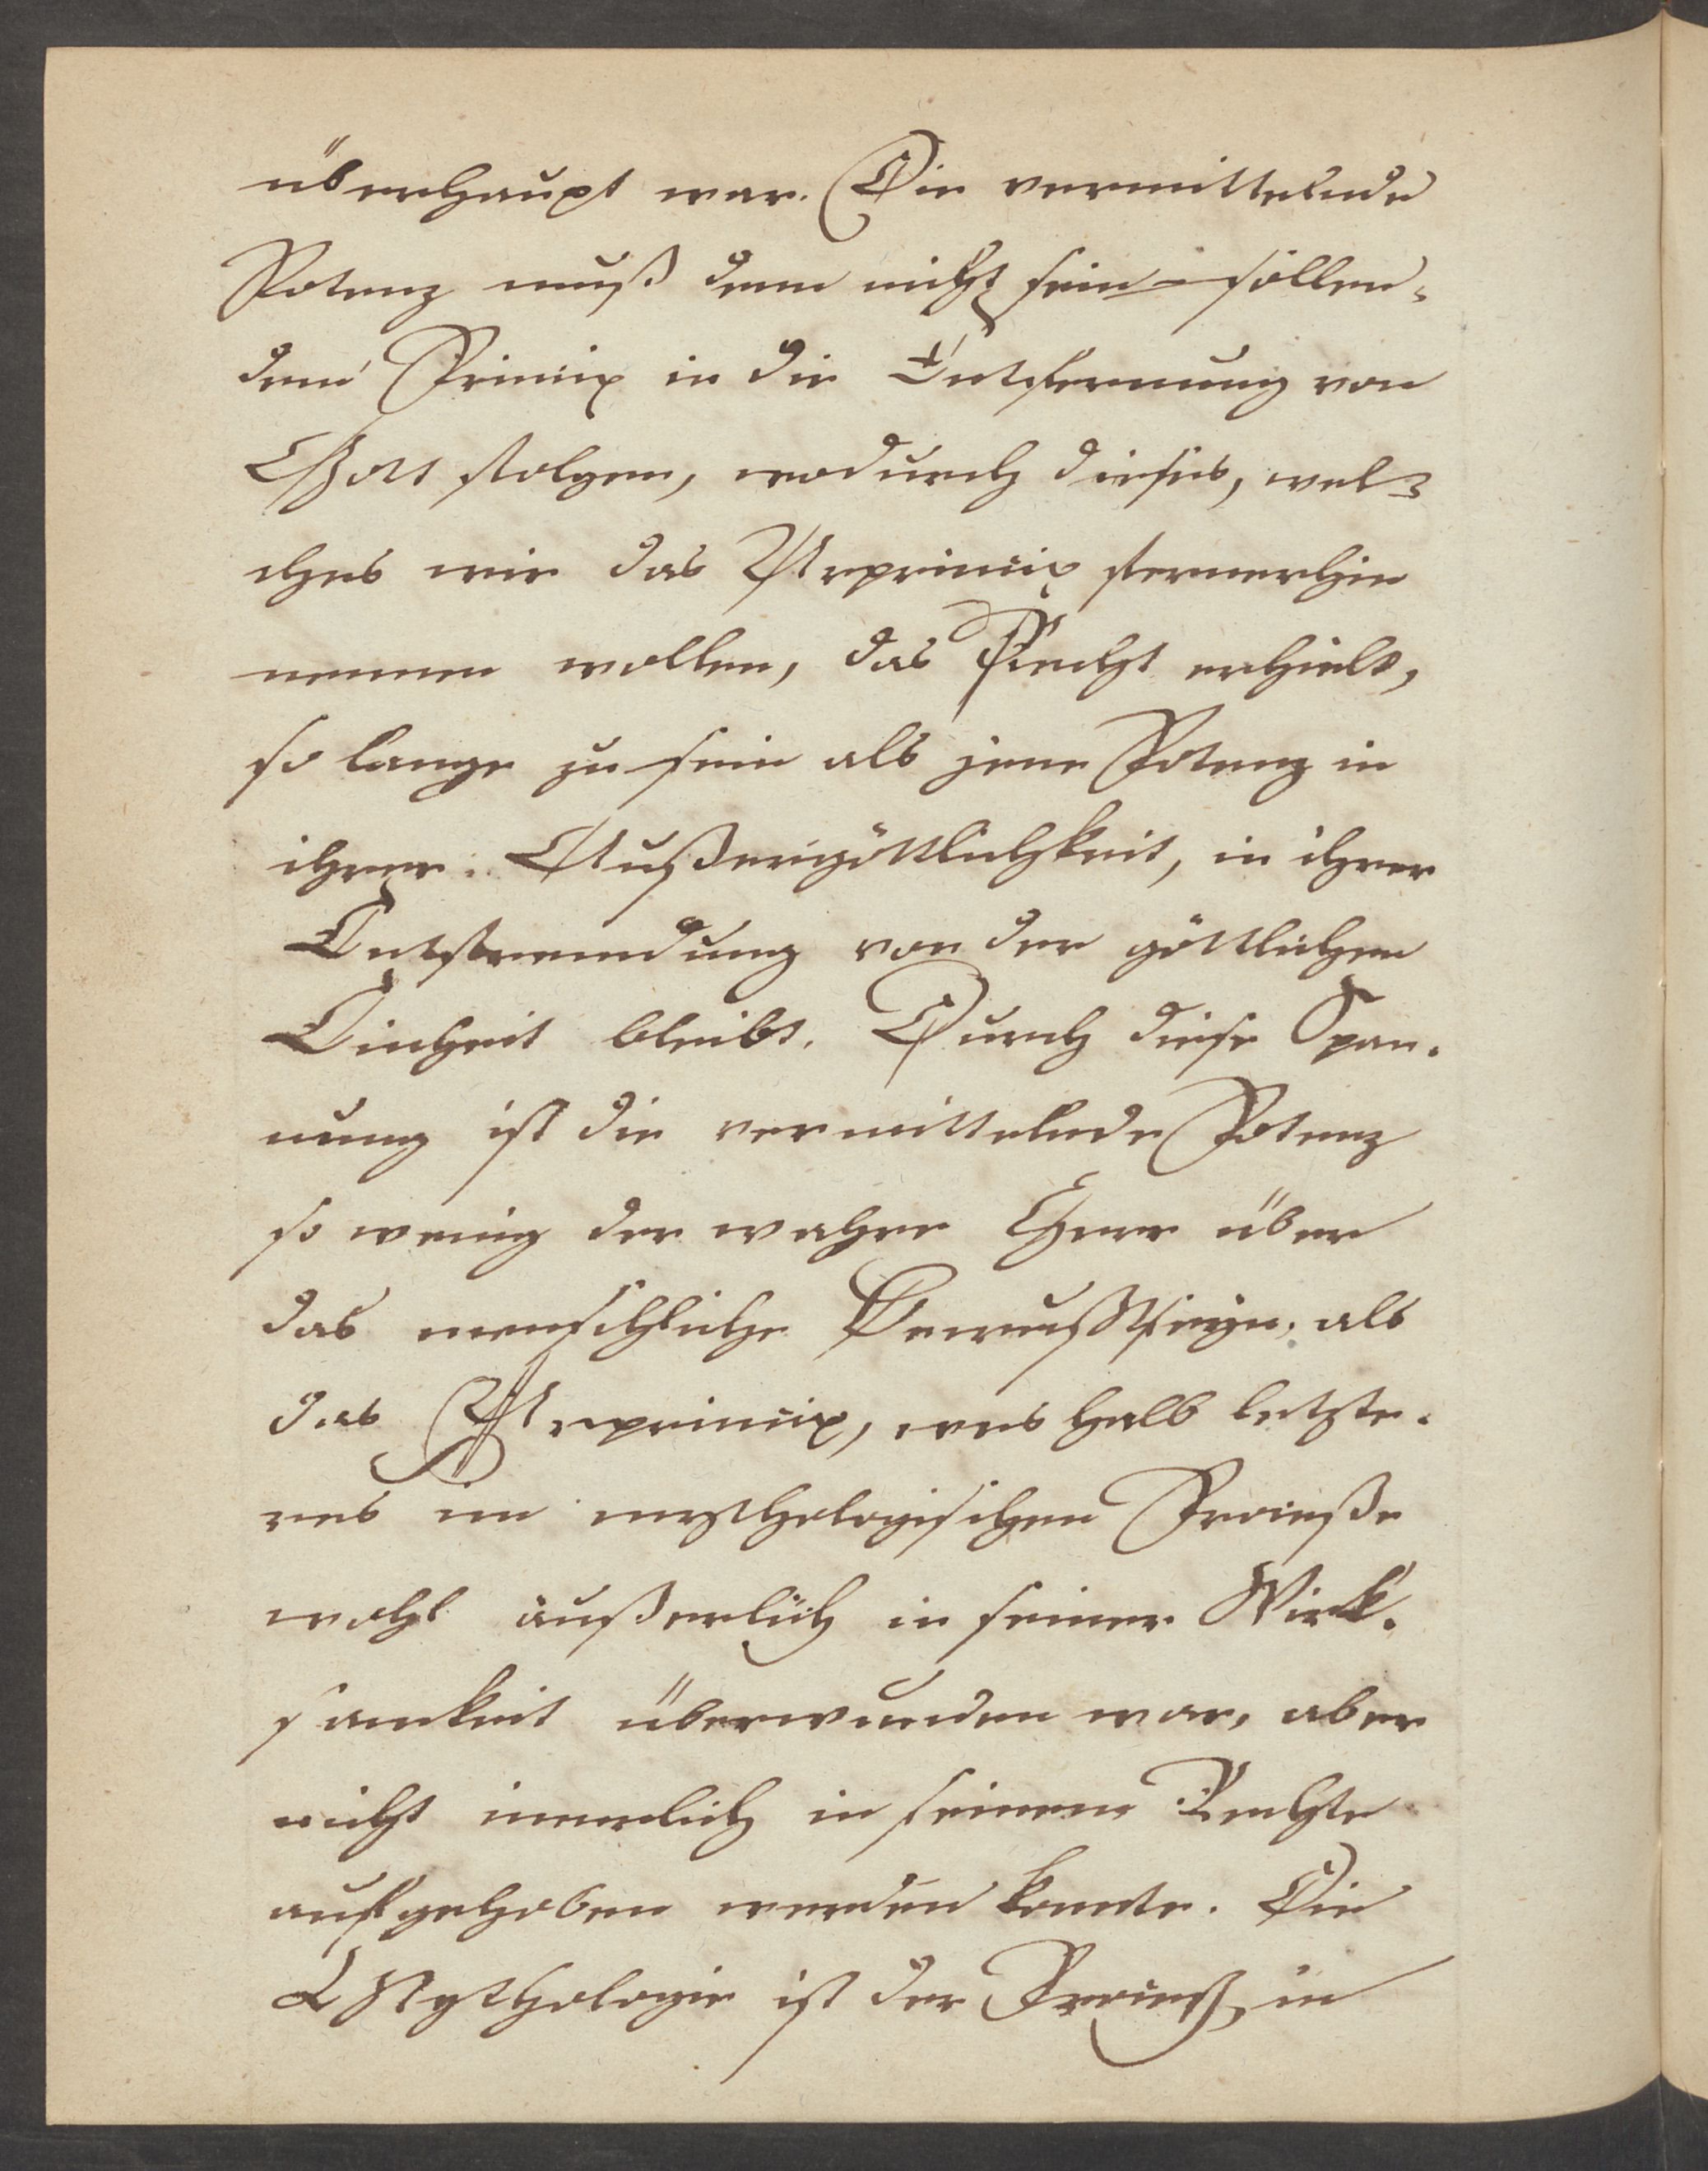 überhaupt war. Die vermittelnde
Potenz muß dem nicht sein-sollen-
dem Princip in die Entfernung von
Gott folgen, wodurch dieses, wel-
ches wir das Urprincip fernerhin
nennen wollen, das Recht erhielt,
so lange zu sein als jene Potenz in
ihrer Außergöttlichkeit, in ihrer
Entfremdung von der göttlichen
Einheit bleibt. Durch diese Span-
nung ist die vermittelnde Potenz
so wenig der wahre Herr über
das menschliche Bewußtseyn, als
das Urprincip, weshalb letzte-
res im mythologischen Proceße
wohl äußerlich in seiner Wirk-
samkeit überwunden war, aber
nicht innerlich in seinem Rechte
aufgehoben werden konnte. Die
Mythologie ist der Proceß, in